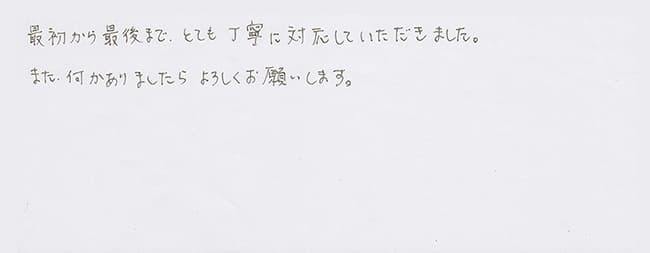 最初から最後まで、とても丁寧に対応していただきました。
また、何かありましたらよろしくお願いします。